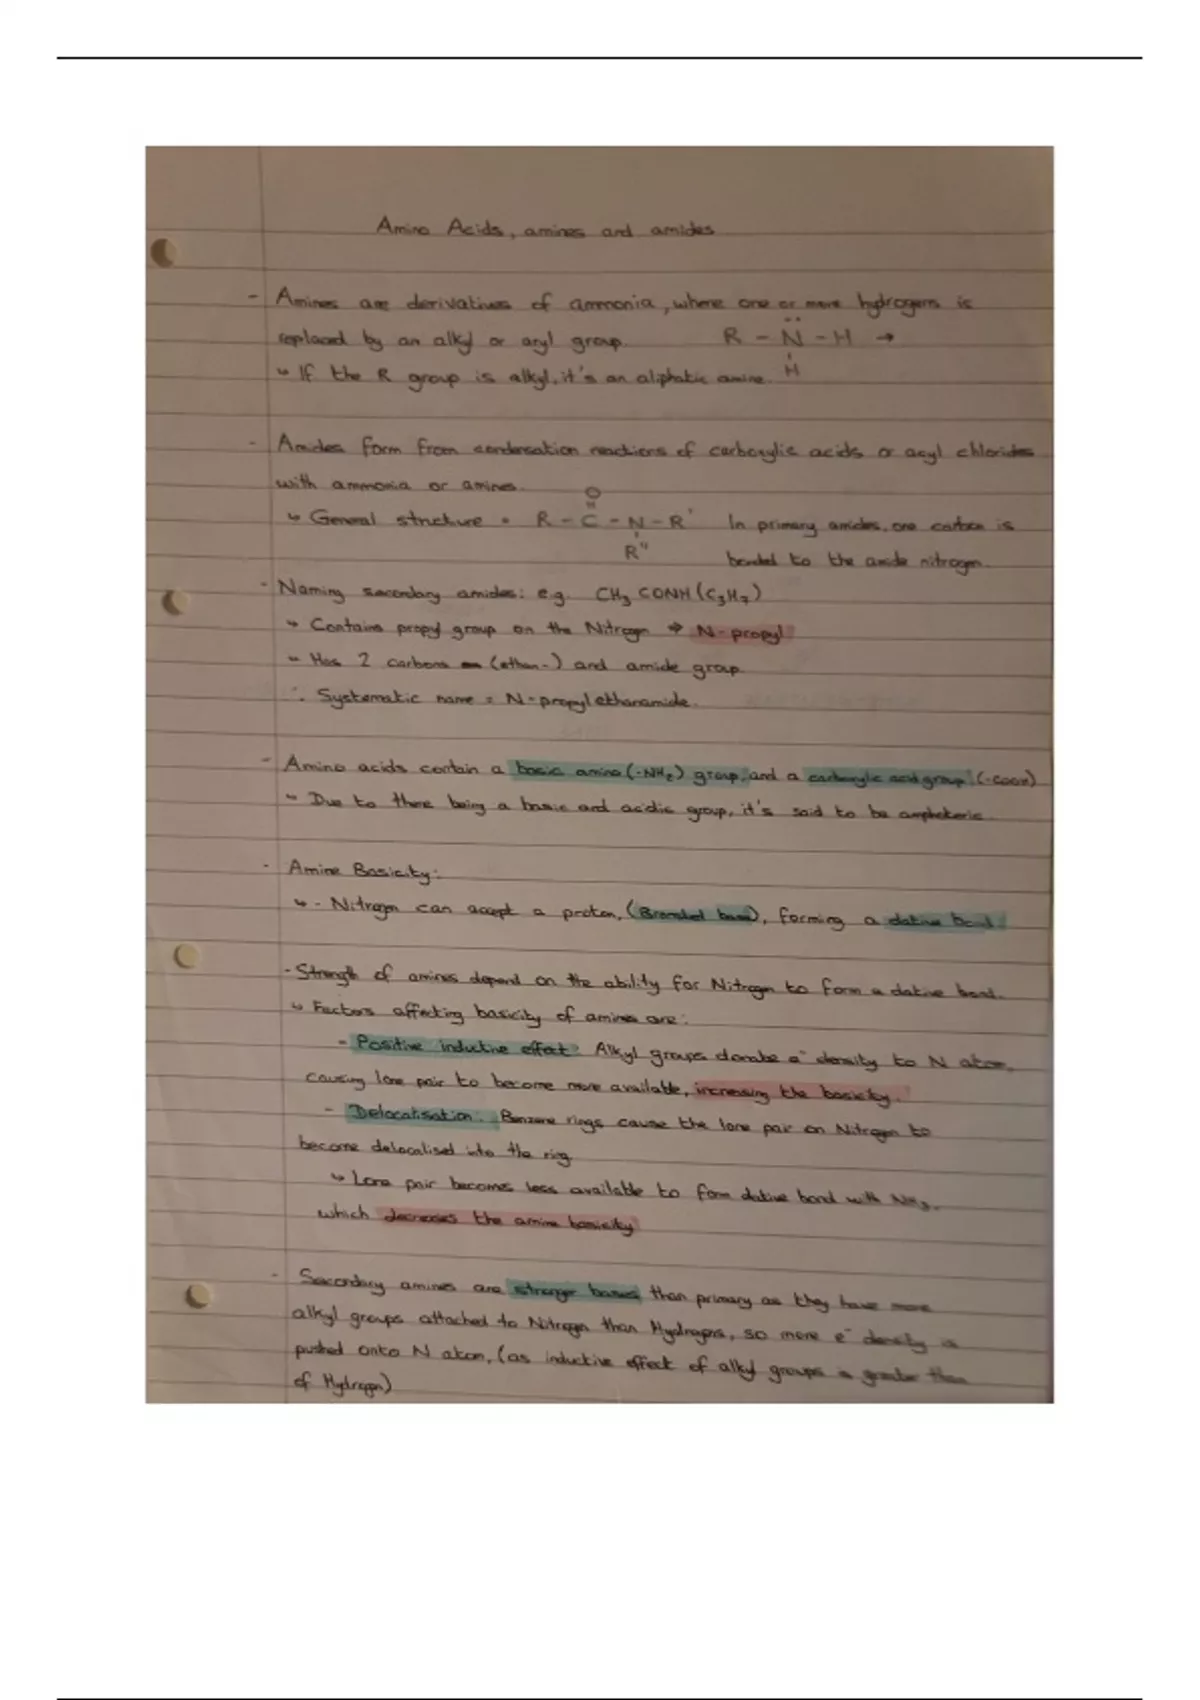 Amino Acids, amines and amides
- Amines are derivatives of ammonia, where one or more hydrogens is
replaced by an alkyl or aryl group. R - N̈ - H →
H
↳ If the R group is alkyl, it's an aliphatic amine.
- Amides form from condensation reactions of carboxylic acids or acyl chlorides
with ammonia or amines.
O
↳ General structure = R - C - N - R' In primary amides, one carbon is
R" bonded to the amide nitrogen.
- Naming secondary amides: e.g. CH3CONH(C3H7)
↳ Contains propyl group on the Nitrogen → N-propyl
↳ Has 2 carbons (ethan-) and amide group.
∴ Systematic name = N-propylethanamide.
- Amino acids contain a basic amino (-NH2) group, and a carboxylic acid group. (-COOH)
↳ Due to there being a basic and acidic group, it's said to be amphoteric.
- Amine Basicity:
↳ - Nitrogen can accept a proton, (Bronsted base), forming a dative bond.
- Strength of amines depend on the ability for Nitrogen to form a dative bond.
↳ Factors affecting basicity of amines are:
- Positive inductive effect: Alkyl groups donate e⁻ density to N atom,
causing lone pair to become more available, increasing the basicity.
- Delocalisation: Benzene rings cause the lone pair on Nitrogen to
become delocalised into the ring.
↳ Lone pair becomes less available to form dative bond with NH3,
which decreases the amine basicity
- Secondary amines are stronger bases than primary as they have more
alkyl groups attached to Nitrogen than Hydrogens, so more e⁻ density is
pushed onto N atom, (as inductive effect of alkyl groups is greater than
of Hydrogen)